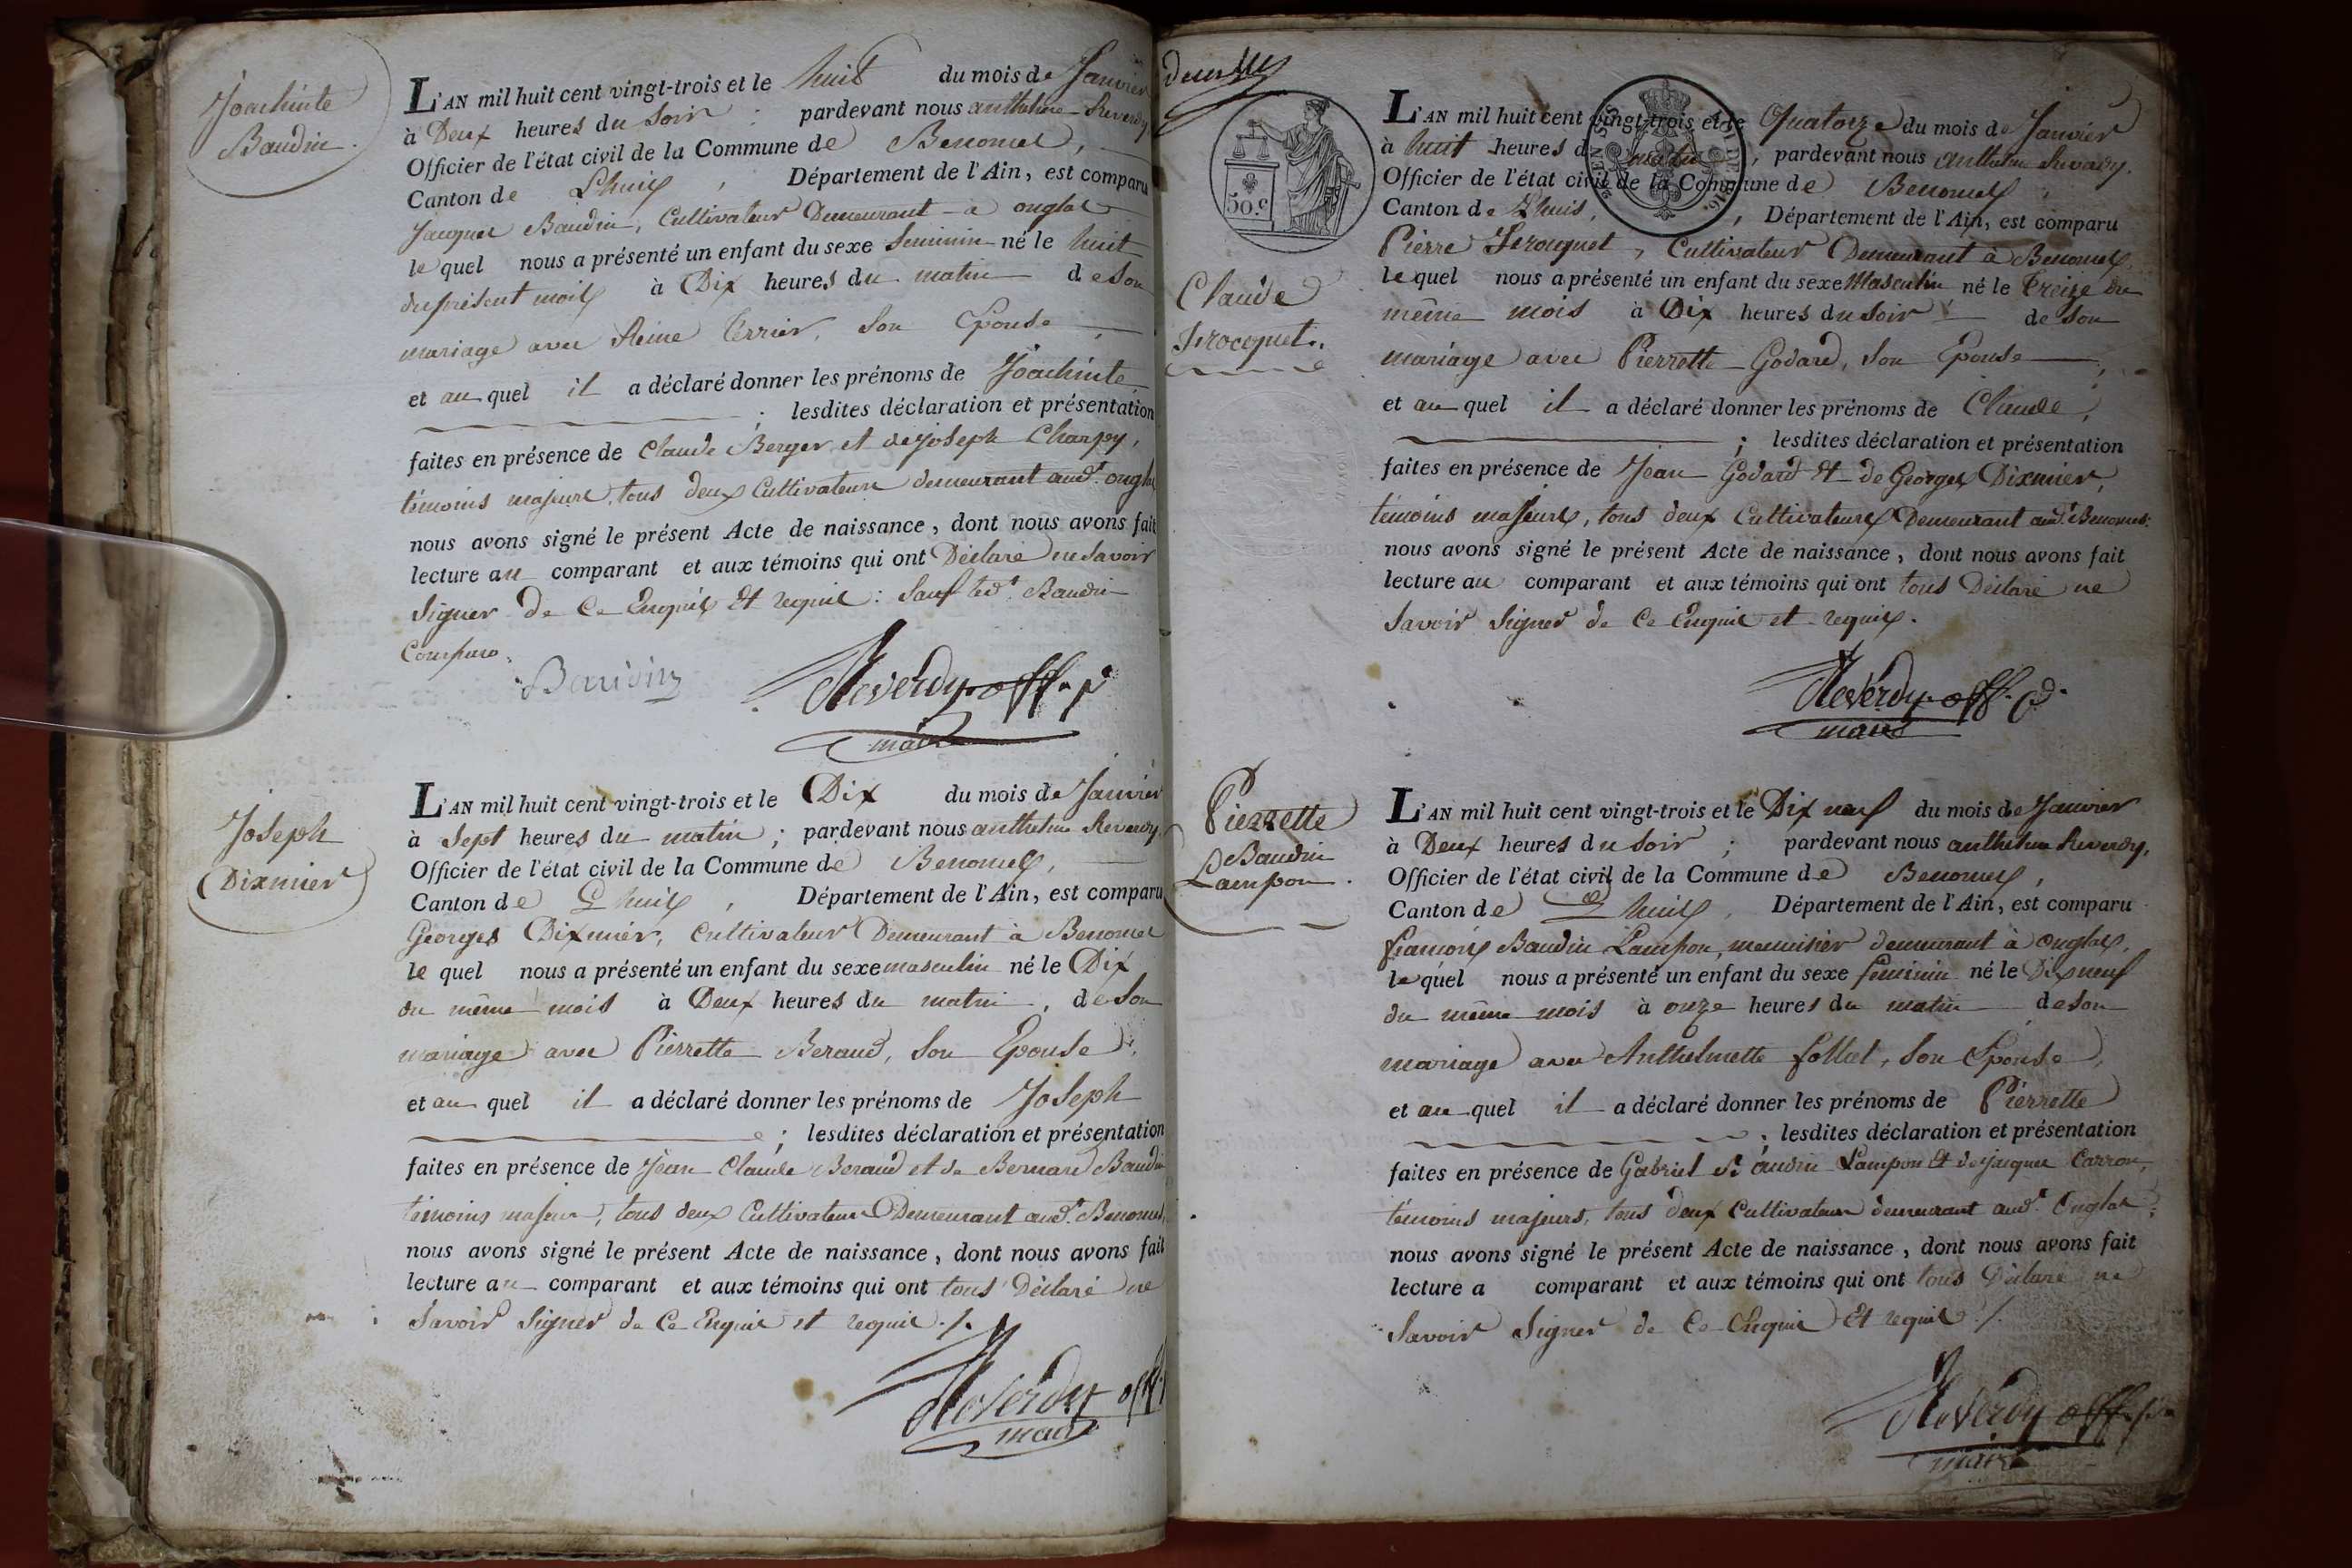 Joachinte
Baudin.
L'AN mil huit cent vingt-trois et le huit du mois de Janvier
à Deux heures du Soir ; pardevant nous anthelme Reverdy
Officier de l'état civil de la Commune de Benonces,
Canton de Lhuis, Département de l'Ain, est comparu
Jacques Baudin, Cultivateur Demeurant a onglas
lequel nous a présenté un enfant du sexe feminin né le huit
du présent mois à Dix heures du matin de son
mariage avec Reine Terrier, Son Epouse
et au quel il a déclaré donner les prénoms de Joachinte
; lesdites déclaration et présentation
faites en présence de Claude Berger et de Joseph Charpy,
témoins majeurs, tous deux Cultivateurs demeurant aud.t onglas
nous avons signé le présent Acte de naissance, dont nous avons fait
lecture au comparant et aux témoins qui ont Déclaré ne Savoir
Signer de Ce Enquis et requis : Sauf led.t Baudin
Comparu.
Baudin Reverdy off. p
maire
Joseph
Dixmier
L'AN mil huit cent vingt-trois et le Dix du mois de Janvier
à Sept heures du matin ; pardevant nous anthelme Reverdy,
Officier de l'état civil de la Commune de Benonces,
Canton de Lhuis, Département de l'Ain, est comparu
Georges Dixmier, Cultivateur Demeurant à Benonces
le quel nous a présenté un enfant du sexe masculin né le Dix
du même mois à Deux heures du matin, de Son
mariage avec Pierrette Beraud, Son Epouse,
et au quel il a déclaré donner les prénoms de Joseph
; lesdites déclaration et présentation
faites en présence de Jean Claude Beraud et de Bernard Baudin
témoins majeurs, tous deux Cultivateurs Demeurant aud.t Benonces,
nous avons signé le présent Acte de naissance, dont nous avons fait
lecture au comparant et aux témoins qui ont tous Déclaré ne
Savoir Signer de Ce Enquis et requis ./.
Reverdy off.
maire
50.c
Claude
Frocquet.
L'AN mil huit cent vingt-trois et le Quatorze du mois de Janvier
à huit heures du matin, pardevant nous anthelme Reverdy.
Officier de l'état civil de la Commune de Benonces,
Canton de Lhuis, Département de l'Ain, est comparu
Pierre Frocquet, Cultivateur Demeurant à Benonces,
lequel nous a présenté un enfant du sexe Masculin né le treize du
même mois à Dix heures du Soir de Son
mariage avec Pierrette Godard, Son Epouse
et au quel il a déclaré donner les prénoms de Claude,
; lesdites déclaration et présentation
faites en présence de Jean Godard Et de Georges Dixmier,
témoins majeurs, tous deux Cultivateurs Demeurant aud.t Benonces.
nous avons signé le présent Acte de naissance, dont nous avons fait
lecture au comparant et aux témoins qui ont tous Déclaré ne
Savoir Signer de Ce Enquis et requis.
Reverdy off. p
maire
Pierrette
Baudin
Lampon.
L'AN mil huit cent vingt-trois et le Dix neuf du mois de Janvier
à Deux heures du Soir ; pardevant nous anthelme Reverdy,
Officier de l'état civil de la Commune de Benonces,
Canton de Lhuis, Département de l'Ain, est comparu
françois Baudin Lampon, menuisier demeurant à onglas,
lequel nous a présenté un enfant du sexe féminin né le Dix neuf
du même mois à onze heures du matin de son
mariage avec Anthelmette follut, Son Epouse,
et au quel il a déclaré donner les prénoms de Pierrette
; lesdites déclaration et présentation
faites en présence de Gabriel Baudin Lampon Et de Jacques Carron,
témoins majeurs, tous deux Cultivateurs demeurant aud.t Onglas ;
nous avons signé le présent Acte de naissance, dont nous avons fait
lecture a comparant et aux témoins qui ont tous Déclaré ne
Savoir Signer de Ce Enquis Et requis ./.
Reverdy off. p
maire